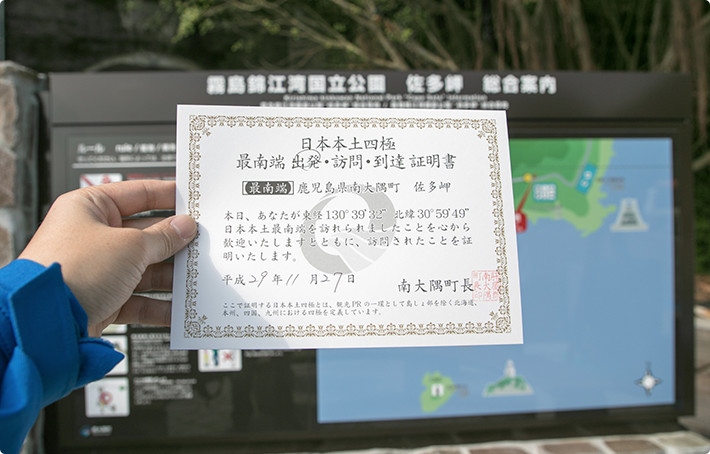 霧島錦江湾国立公園 佐多岬 総合案内
日本本土四極
最南端 出発・訪問・到達 証明書
【最南端】鹿児島県南大隅町 佐多岬
本日、あなたが東経130°39′32″北緯30°59′49″
日本本土最南端を訪れられましたことを心から
歓迎いたしますとともに、訪問されたことを証
明いたします。
平成29年11月27日
南大隅町長
ここで証明する日本本土四極とは、観光PRの一環として島しょ部を除く北海道、
本州、四国、九州における四極を定義しています。
ルール